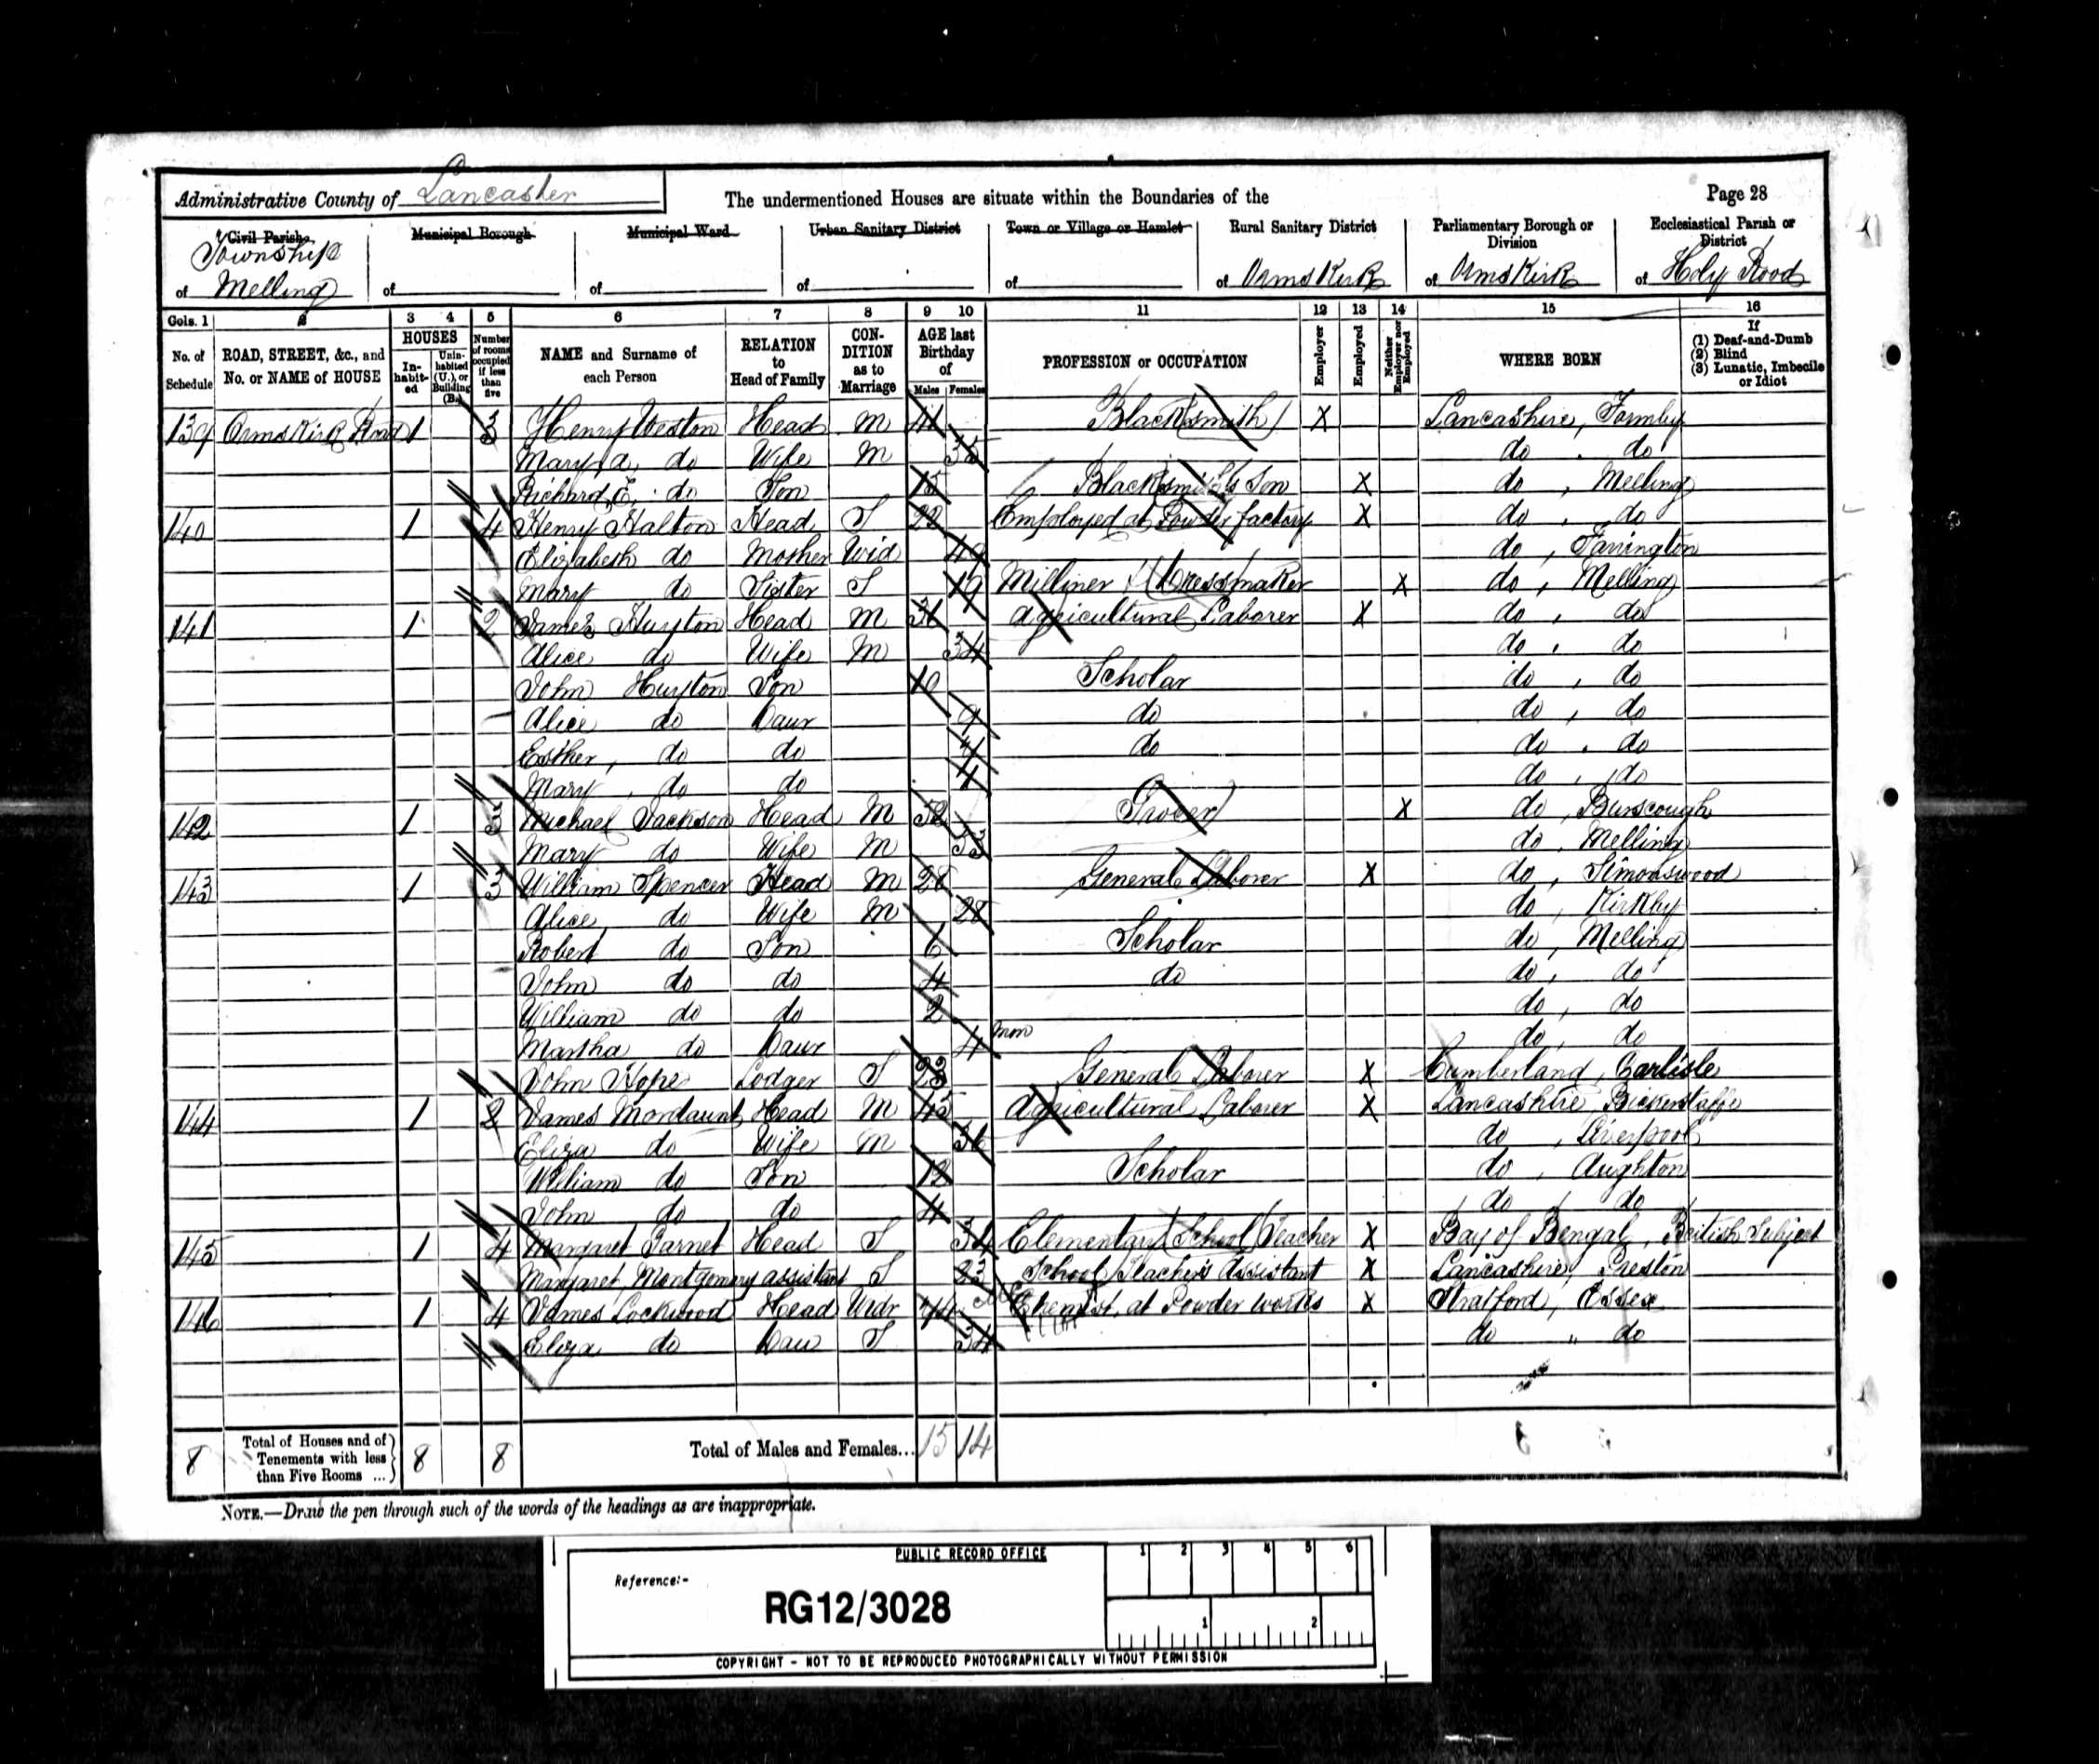 Administrative County of Lancaster
The undermentioned Houses are situate within the Boundaries of the
Page 28
Civil Parish Township of Melling
Municipal Borough of
Municipal Ward of
Urban Sanitary District of
Town or Village or Hamlet of
Rural Sanitary District of Ormskirk
Parliamentary Borough or Division of Ormskirk
Ecclesiastical Parish or District of Holy Rood
Cols. 1 2 3 4 5 6 7 8 9 10 11 12 13 14 15 16
No. of Schedule
ROAD, STREET, &c., and No. or NAME of HOUSE
HOUSES
In-habit-ed
Unin-habited (U.), or Building (B.)
Number of rooms occupied if less than five
NAME and Surname of each Person
RELATION to Head of Family
CON-DITION as to Marriage
AGE last Birthday of
Males Females
PROFESSION or OCCUPATION
Employer
Employed
Neither Employer nor Employed
WHERE BORN
If (1) Deaf-and-Dumb (2) Blind (3) Lunatic, Imbecile or Idiot
139 Ormskirk Road 1 3 Henry Weston Head M 41 Blacksmith X Lancashire, Formby
Mary A. do Wife M 35 do . do
Richard E. do Son 15 Blacksmith's Son X do , Melling
140 1 4 Henry Halton Head S 22 Employed at Powder factory X do . do
Elizabeth do Mother Wid 49 do , Farrington
Mary do Sister S 19 Milliner & Dressmaker X do , Melling
141 1 2 James Huyton Head M 31 Agricultural Laborer X do , do
Alice do Wife M 34 do . do
John Huyton Son 10 Scholar do , do
Alice do Daur 9 do do , do
Esther, do do do do . do
Mary , do do 4 do , do
142 1 3 Michael Jackson Head M 52 Grocer X do , Burscough
Mary do Wife M 53 do , Melling
143 1 3 William Spencer Head M 28 General Laborer X do , Simonswood
Alice do Wife M 28 do , Kirkby
Robert do Son 6 Scholar do , Melling
John do do 4 do do , do
William do do 2 do , do
Martha do Daur 4 mon do , do
John Hope Lodger S 23 General Laborer X Cumberland, Carlisle
144 1 2 James Mordaunt Head M 45 Agricultural Laborer X Lancashire, Bickerstaffe
Eliza do Wife M 36 do , Liverpool
William do Son 12 Scholar do , Aughton
John do do 4 do , do
145 1 4 Margaret Garnet Head S 34 Elementary School Teacher X Bay of Bengal, British Subject
Margaret Montgomery assistant S 23 School Teacher's Assistant X Lancashire, Preston
146 1 4 James Lockwood Head Widr 74 Chemist, at Powder works X Stratford, Essex
Eliza do Daur S 34 do " do
8 Total of Houses and of Tenements with less than Five Rooms ... 8 8 Total of Males and Females... 15 14
NOTE.—Draw the pen through such of the words of the headings as are inappropriate.
PUBLIC RECORD OFFICE
1 2 3 4 5 6
Reference:-
RG12/3028
1 2
COPYRIGHT - NOT TO BE REPRODUCED PHOTOGRAPHICALLY WITHOUT PERMISSION